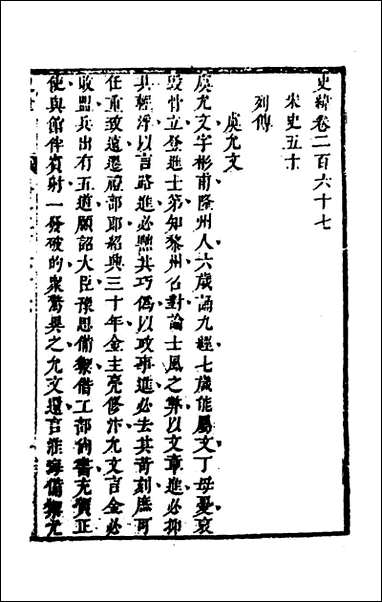 史緯卷二百六十七
宋史五十
列傳
虞允文
虞允文字彬甫隆州人六歲誦九經七歲能屬文丁母憂哀
毀骨立登進士第知黎州召對論士風之弊以文章進必抑
其輕浮以言路進必黜其巧僞以政事進必去其苛刻庶可
任重致遠遷禮部郎紹興三十年金主亮修汴允文言金必
敗盟兵出有五道願詔大臣豫思備禦借工部尚書充賀正
使與館伴賓射一發破的衆驚異之允文還言淮海備禦允